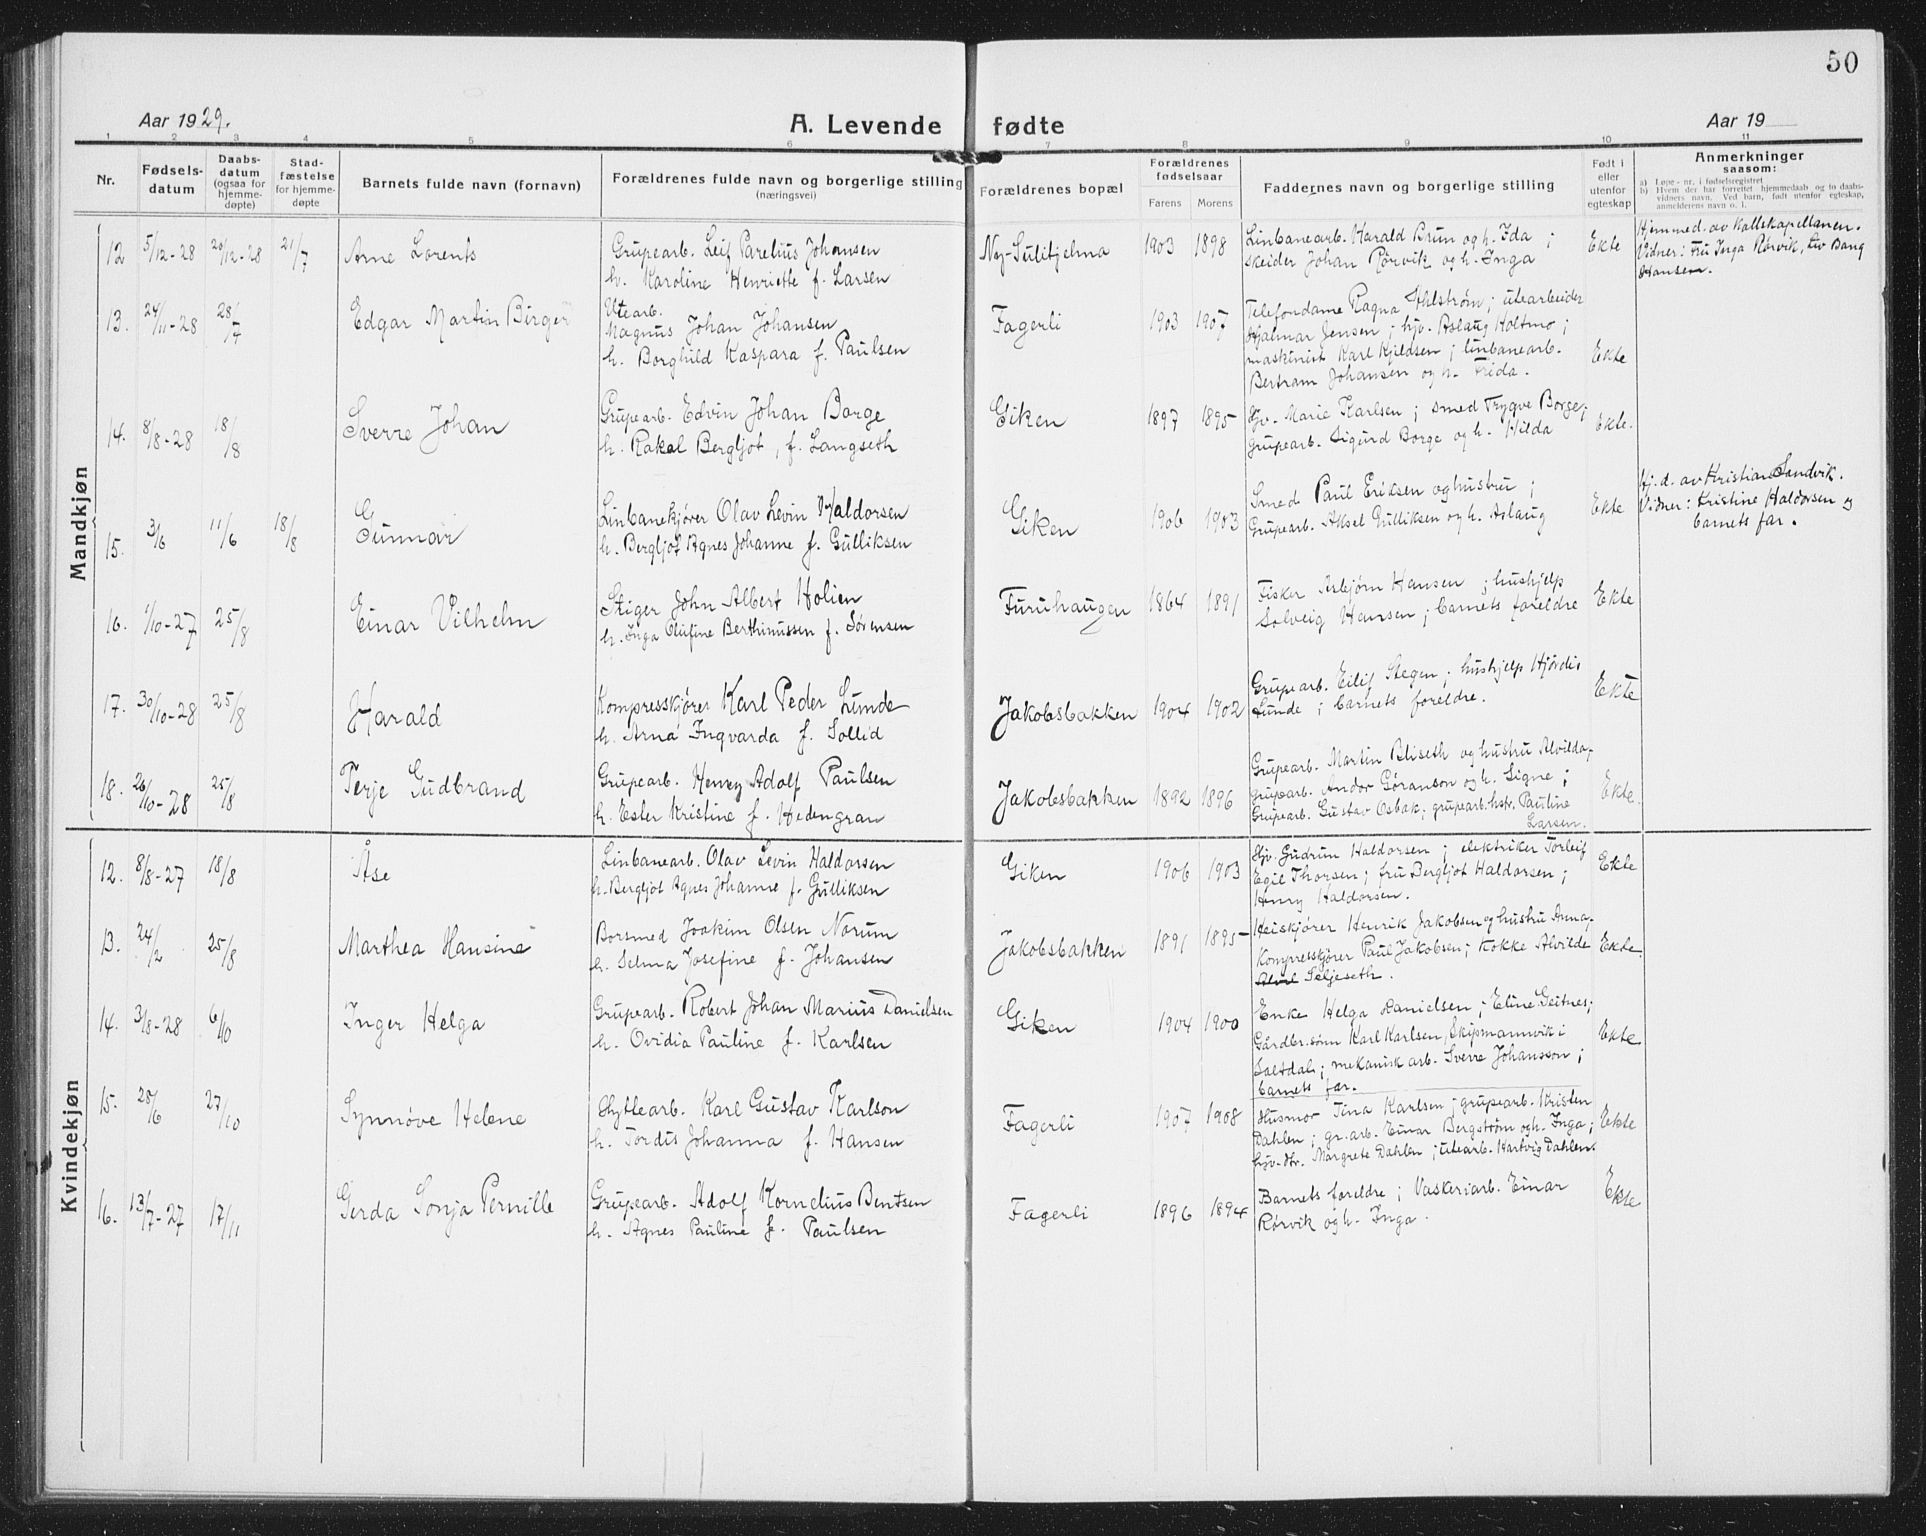 50
Aar 1929.
A. Levende fødte
Aar 19
1 2 3 4 5 6 7 8 9 10 11
Nr.
Fødsels-
datum
Daabs-
datum
(ogsaa for
hjemme-
døpte)
Stad-
fæstelse
for hjemme-
døpte
Barnets fulde navn (fornavn)
Forældrenes fulde navn og borgerlige stilling
(næringsvei)
Forældrenes bopæl
Forældrenes
fødselsaar
Farens Morens
Faddernes navn og borgerlige stilling
Født i
eller
utenfor
egteskap
Anmerkninger
saasom:
a) Løpe-nr. i fødselsregistret
b) Hvem der har forrettet hjemmedaab og to daabs-
vidners navn. Ved barn, født utenfor egteskap,
anmelderens navn o. l.
Mandkjøn
12 5/12-28 20/12-28 21/7 Arne Lorents
Grupearb. Leif Parelius Johansen
h. Karoline Henriette f. Larsen
Ny-Sulitjelma 1903 1898
Linbanearb. Harald Brun og h. Ida ;
skeider Johan Rørvik og h. Inga
Ekte
Hjemmed. av Kallskapellanen.
Vidner: Fru Inga Rørvik, Liv Bang
Hansen.
13. 24/11-28 28/7 Edgar Martin Birger
Utearb.
Magnus Johan Johansen
h. Borghild Kaspara f. Paulsen
Fagerli 1903 1907
Telefondame Ragna Ahlstrøm ; utearbeider
Hjalmar Jensen ; hjv. Aslaug Holtmo ;
maskinist Karl Kjeldsen ; linbanearb.
Bertram Johansen og h. Frida.
Ekte
14. 8/8-28 18/8 Sverre Johan
Grupearb. Edvin Johan Borge
h. Rakel Bergljot, f. Langseth
Giken 1897 1895
Hjv. Marie Karlsen ; smed Trygve Borge ;
Grupearb. Sigurd Borge og h. Hilda
Ekte.
15. 3/6 11/6 18/8 Gunnar
Linbanekjører Olav Levin Haldorsen
h. Bergljot Agnes Johanne f. Gulliksen
Giken 1906 1903
Smed Paul Eriksen og hustru ;
Grupearb. Aksel Gulliksen og h. Aslaug
Ekte
Hj. d. av Kristian Sandvik.
Vidner: Kristine Haldorsen og
barnets far.
16. 1/10-27 25/8 Einar Vilhelm
Stiger John Albert Holien
h. Inga Olufine Berthinussen f. Sørensen
Furuhaugen 1864 1891
Fisker Arbjørn Hansen ; hushjelp
Solveig Hansen ; barnets foreldre
Ekte
17. 30/10-28 25/8 Harald
Kompresskjører Karl Peder Lunde
h. Arna Ingvarda f. Sollid
Jakobsbakken 1904 1902
Grupearb. Eilif Stegen ; hushjelp Hjørdis
Lunde ; barnets foreldre.
Ekte
18. 26/10-28 25/8 Terje Gudbrand
Grupearb. Henry Adolf Paulsen
h. Ester Kristine f. Hedengran
Jakobsbakken 1892 1896
Grupearb. Martin Bliseth og hustru Alvilda,
grupearb. Andor Gøranson og h. Signe ;
Grupearb. Gustav Osbak ; grupearb.hstr. Pauline
Larsen.
Ekte.
Kvindekjøn
12. 8/8-27 18/8 Åse
Linbanearb. Olav Levin Haldorsen
h. Bergljot Agnes Johanne f. Gulliksen
Giken 1906 1903
Hjv. Gudrun Haldorsen ; elektriker Torleif
Egil Thorsen ; fru Bergljot Haldorsen ;
Henry Haldorsen.
Ekte
13. 24/2 25/8 Marthea Hansine
Borsmed Joakim Olsen Norum
h. Selma Josefine f. Johansen
Jakobsbakken 1891 1895
Heiskjører Henrik Jakobsen og hustru Anna,
Kompresskjører Paul Jakobsen ; Kokke Alvilde
Seljeseth.
Ekte.
14. 3/8-28 6/10 Inger Helga
Grupearb. Robert Johan Marius Danielsen
h. Ovidia Pauline f. Karlsen
Giken 1904 1900
Enke Helga Danielsen ; Eline Geitnes ;
Gårdbr.sønn Karl Karlsen, Skipmannvik i
Saltdal ; mekanisk arb. Sverre Johansson ;
barnets far.
Ekte.
15. 28/6 27/10 Synnøve Helene
Hyttearb. Karl Gustav Karlson
h. Tordis Johanna f. Hansen
Fagerli 1907 1908
Husmor Tina Karlsen ; grupearb. Kristen
Dahlen ; gr.arb. Einar Bergstrøm og h. Inga ;
hjv. dtr. Margrete Dahlen ; utearb. Hartvig Dahlen.
Ekte
16. 13/7-27 17/11 Gerda Sonja Pernille
Grupearb. Adolf Kornelius Bentsen
h. Agnes Pauline f. Paulsen
Fagerli 1896 1894
Barnets foreldre ; Vaskeriarb. Einar
Rørvik og h. Inga.
Ekte